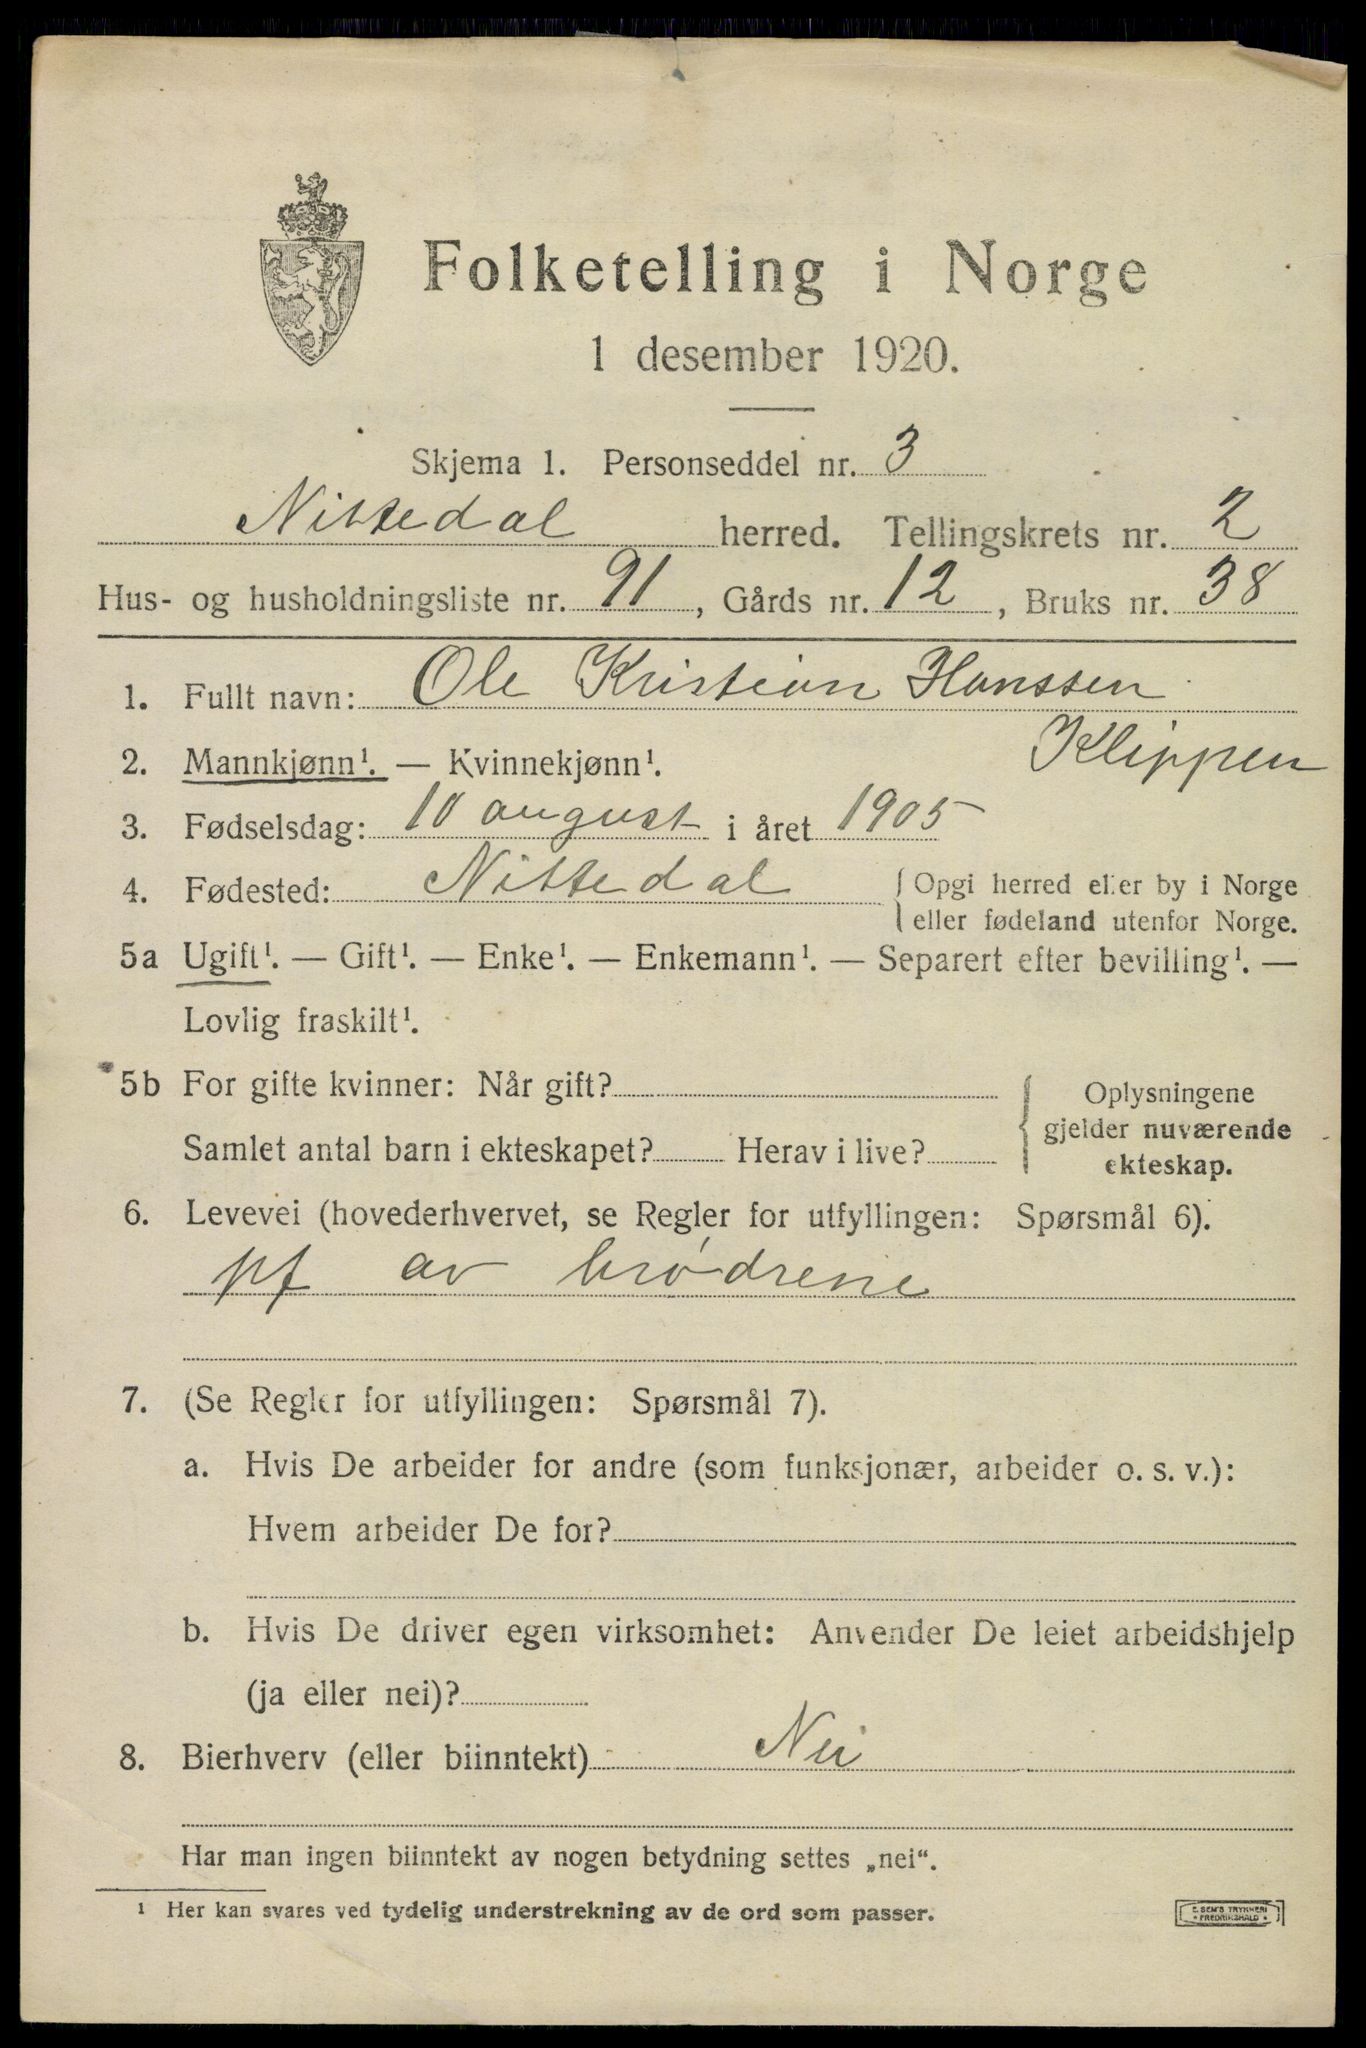 Folketelling i Norge
1 desember 1920.
Skjema 1. Personseddel nr. 3
Nittedal herred. Tellingskrets nr. 2
Hus- og husholdningsliste nr. 91, Gårds nr. 12, Bruks nr. 38
1. Fullt navn: Ole Kristian Hanssen
Klippen
2. Mannkjønn¹. — Kvinnekjønn¹.
3. Fødselsdag: 10 august i året 1905
4. Fødested: Nittedal { Opgi herred eller by i Norge
eller fødeland utenfor Norge.
5a Ugift¹. — Gift¹. — Enke¹. — Enkemann¹. — Separert efter bevilling¹. —
Lovlig fraskilt¹.
5b For gifte kvinner: Når gift?
Samlet antal barn i ekteskapet? Herav i live?
{ Oplysningene
gjelder nuværende
ekteskap.
6. Levevei (hovederhvervet, se Regler for utfyllingen: Spørsmål 6).
pf av brødrene
7. (Se Regler for utfyllingen: Spørsmål 7).
a. Hvis De arbeider for andre (som funksjonær, arbeider o. s. v.):
Hvem arbeider De for?
b. Hvis De driver egen virksomhet: Anvender De leiet arbeidshjelp
(ja eller nei)?
8. Bierhverv (eller biinntekt) Nei
Har man ingen biinntekt av nogen betydning settes „nei“.
¹ Her kan svares ved tydelig understrekning av de ord som passer.
E. SEM'S TRYKKERI
FREDRIKSHALD